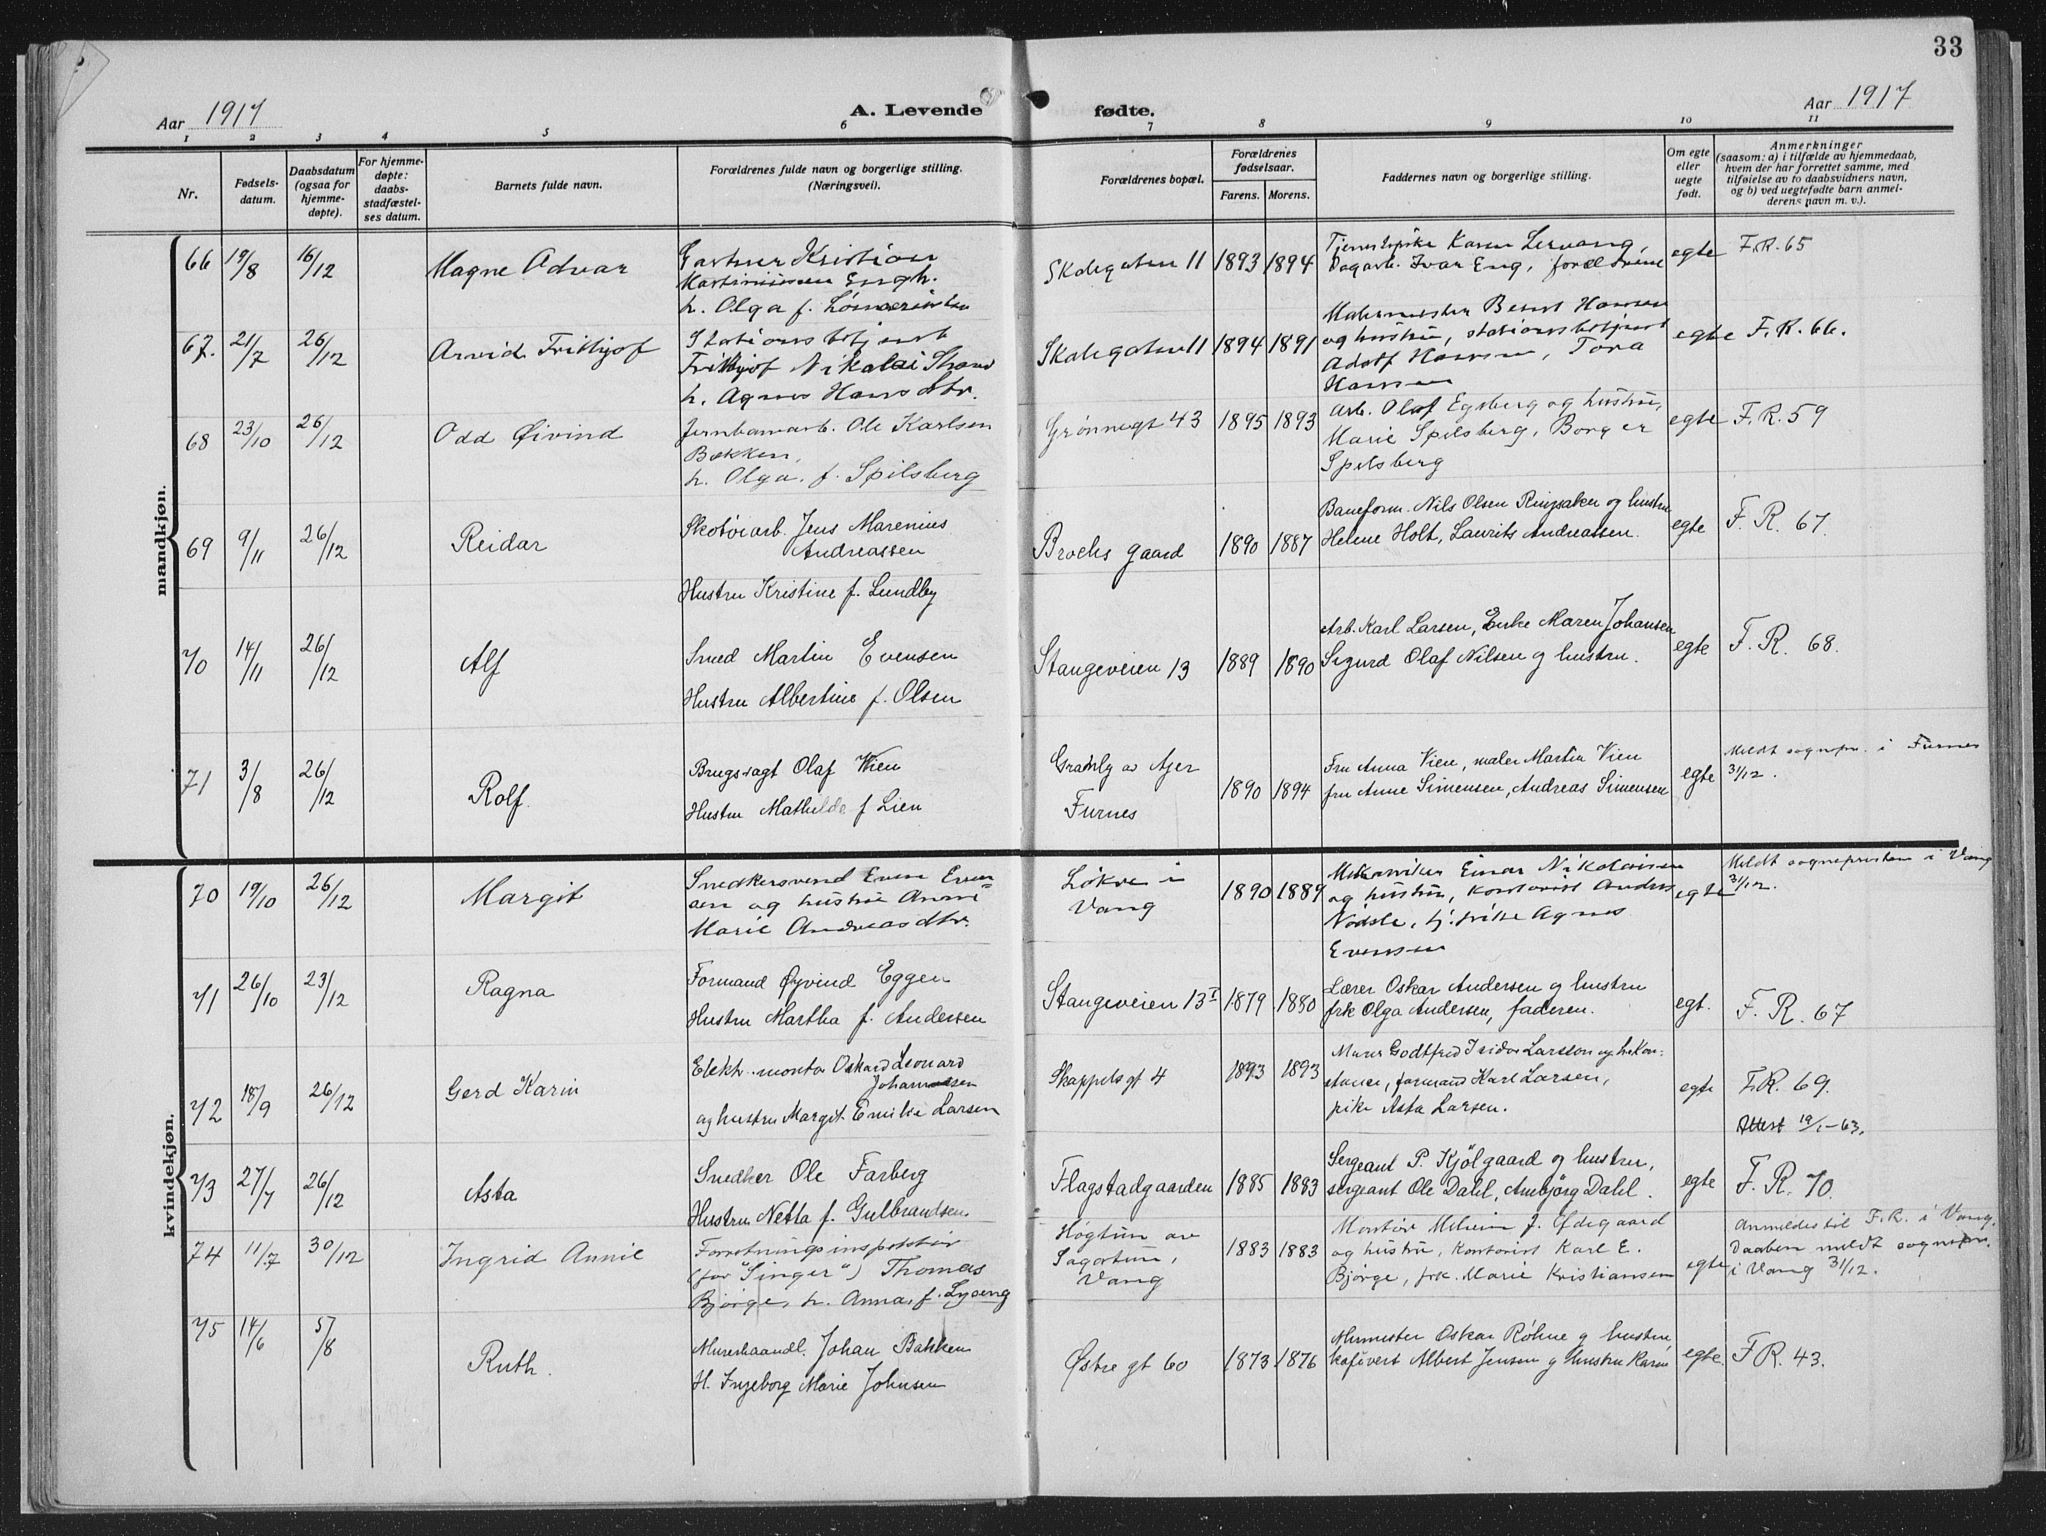 33
Aar 1917
A. Levende fødte.
Aar 1917
1 2 3 4 5 6 7 8 9 10 11
Nr.
Fødsels-
datum.
Daabsdatum
(ogsaa for
hjemme-
døpte).
For hjemme-
døpte:
daabs-
stadfæstel-
ses datum.
Barnets fulde navn.
Forældrenes fulde navn og borgerlige stilling.
(Næringsvei).
Forældrenes bopæl.
Forældrenes
fødselsaar.
Farens. Morens.
Faddernes navn og borgerlige stilling.
Om egte
eller
uegte
født.
Anmerkninger
(saasom: a) i tilfælde av hjemmedaab,
hvem der har forrettet samme, med
tilføielse av to daabsvidners navn,
og b) ved uegtefødte barn anmel-
derens navn m. v.).
mandkjøn.
66 19/8 16/12 Magne Odvar
Gartner Kristian
Martiniussen Engh.
h. Olga f.
Skolegaten 11 1893 1894
Tjenestepike Karen Lervang,
Dagarb. Ivar Eng, forældrene
egte F.R. 65
67. 21/7 26/12 Arvid Frithjof
Stationsbetjent
Frithjof Nikolai Strand
h. Agnes Hansdtr.
Skolegaten 11 1894 1891
Malermester Bernt Hansen
og hustru, stationsbetjent
Adolf Hansen, Tora
Hansen
egte F.R. 66.
68 23/10 26/12 Odd Øivind
Jernbanearb. Ole Karlsen
Bækken,
h. Olga, f. Spilsberg
Grønnegt 43 1895 1893
Arb. Olaf Egsberg og hustru,
Marie Spilsberg, Borger
Spilsberg
egte F.R. 59
69 9/11 26/12 Reidar
Skotøiarb. Jens Marenius
Andreassen
Hustru Kristine f. Lundby
Brochs gaard 1890 1887
Baneform. Nils Olsen Ringsaker og hustru
Helene Holt, Laurits Andreassen.
egte F. R. 67.
70 14/11 26/12 Alf
Smed Martin Evensen
Hustru Albertine f. Olsen
Stangeveien 13 1889 1890
Arb. Karl Larsen, Enke Maren Johansen
Sigurd Olaf Nilsen og hustru.
egte F. R. 68.
71 3/8 26/12 Rolf.
Brugsvagt Olaf Wien
Hustru Mathilde f Lien
Granly av Ajer
Furnes
1890 1894
Fru Anna Vien, maler Martin Vien
fru Anne Simensen, Andreas Simensen
egte
Meldt sognepr. i Furnes
31/12.
kvindekjøn.
70 19/10 26/12 Margit
Snedkersvend Even Even=
sen og hustru Anne
Marie Andreasdtr.
Løkve i
Vang
1890 1889
Mekaniker Einar Nikolaisen
og hustru, kontorist Anders
Nødsle, tj. pike Agnes
Evensen
egte
Meldt sognepresten i Vang
31/12.
71 26/10 23/12 Ragna
Formand Øyvind Eggen
Hustru Martha f. Andersen
Stangeveien 13 I 1879 1880
Lærer Oskar Andersen og hustru
frk Olga Andersen, faderen.
egt. F. R. 67
72 18/9 26/12 Gerd Karin
Elektr. montør Oskar Leonard
Johannessen
og hustru Margit Emilie Larsen
Skappels gt 4 1893 1893
Murer Godtfred Isidor Larsson og h. Kon-
stance, formand Karl Larsen,
pike Asta Larsen.
egte F.R. 69.
Attest 19/1-63.
73 27/7 26/12 Asta
Snedker Ole Farberg
Hustru Netta f. Gulbrandsen
Flagstadgaarden 1885 1883
Sergeant P. Kjølgaard og hustru,
sergeant Ole Dahl, Ambjørg Dahl.
egte F. R. 70.
74 11/7 30/12 Ingrid Annie
Forretningsinspektør
(for "Singer") Thomas
Bjørge, h. Anna, f. Lyseng
Høgtun av
Sagatun,
Vang
1883 1883
Montør J. Ødegaard
og hustru, kontorist Karl E.
Bjørge, frk. Marie Kristiansen
egte
Anmeldes til F.R. i Vang.
Daaben meldt sognepr.
i Vang 31/12.
75 14/6 5/8 Ruth.
Murerhaandl. Johan Bakken
H. Ingeborg Marie Johnsen
Østre gt 60 1873 1876
Murmester Oskar Røhne og hustru
kafévert Albert Jensen og hustru Karen
egte. F R. 43.